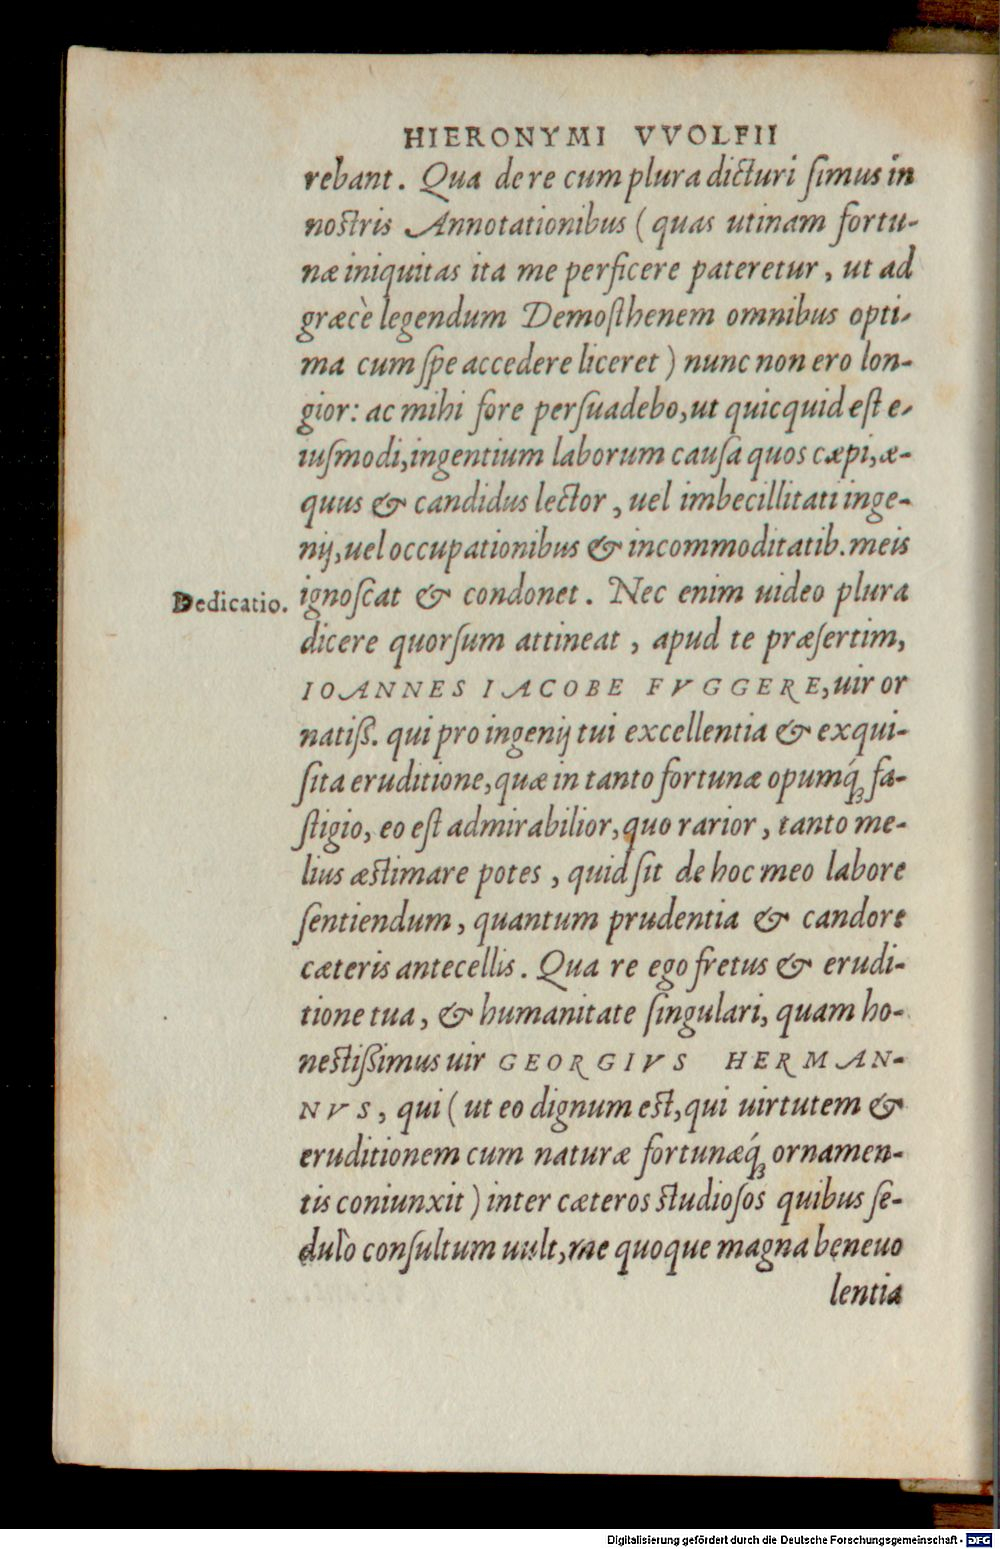 HIERONYMI VVOLFII
rebant. Qua de re cum plura dicturi ſimus in
noſtris Annotationibus (quas utinam fortu-
næ iniquitas ita me perficere pateretur, ut ad
græcè legendum Demoſthenem omnibus opti-
ma cum ſpe accedere liceret) nunc non ero lon-
gior: ac mihi fore perſuadebo, ut quicquid eſt e-
iuſmodi, ingentium laborum cauſa quos cæpi, æ-
quus & candidus lector, uel imbecillitati inge-
nij, uel occupationibus & incommoditatib. meis
Dedicatio. ignoſcat & condonet. Nec enim uideo plura
dicere quorſum attineat, apud te præſertim,
IOANNES IACOBE FVGGERE, uir or
natiß. qui pro ingenij tui excellentia & exqui-
ſita eruditione, quæ in tanto fortunæ opumq́ꝫ fa-
ſtigio, eo eſt admirabilior, quo rarior, tanto me-
lius æſtimare potes, quid ſit de hoc meo labore
ſentiendum, quantum prudentia & candore
cæteris antecellis. Qua re ego fretus & erudi-
tione tua, & humanitate ſingulari, quam ho-
neſtißimus uir GEORGIVS HERMAN-
NVS, qui (ut eo dignum eſt, qui uirtutem &
eruditionem cum naturæ fortunæq́ꝫ ornamen-
tis coniunxit) inter cæteros ſtudioſos quibus ſe-
dulò conſultum uult, me quoque magna beneuo
lentia
Digitalisierung gefördert durch die Deutsche Forschungsgemeinschaft - DFG